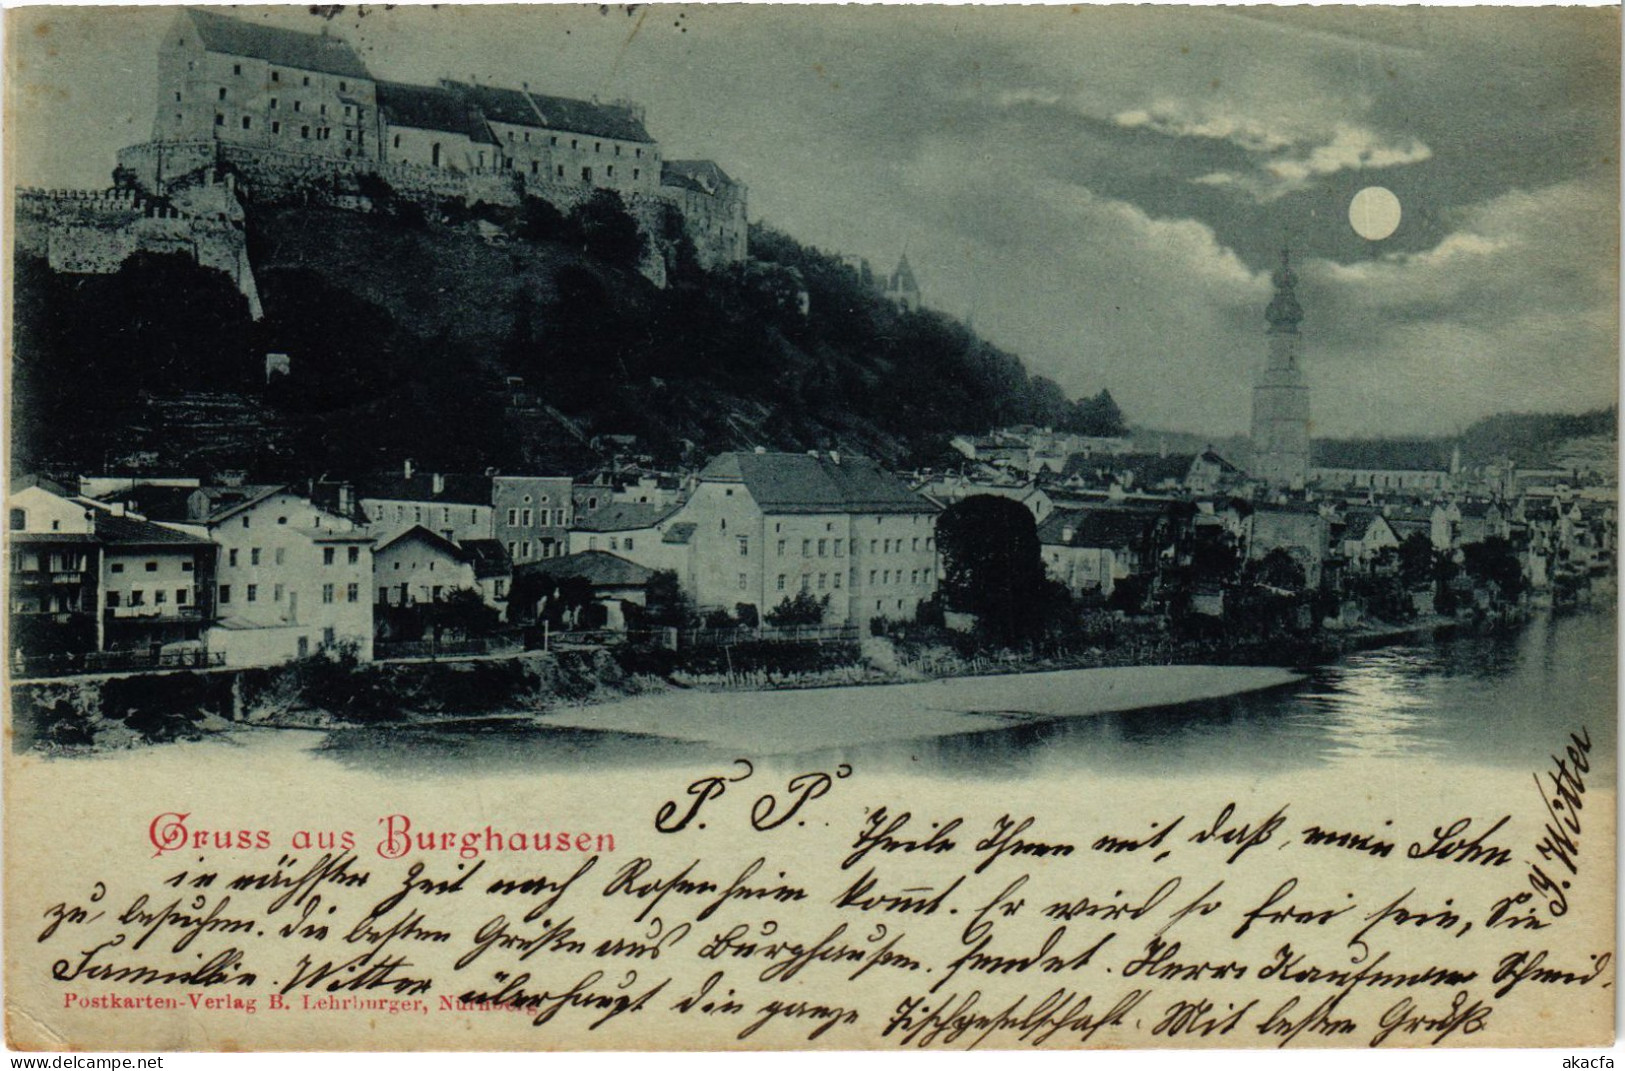 Gruss aus Burghausen
P. P. Theile Ihnen mit, daß, mein Sohn
in nächster Zeit nach Rosenheim kommt. Er wird so frei sein, Sie
zu besuchen. Die besten Grüße aus Burghausen. sendet. Herrn Kaufmann Schmid.
Familie. Witter überhaupt die ganze Tischgesellschaft. Mit besten Gruß
J. Witter
Postkarten-Verlag B. Lehrburger, Nürnberg
akacfa